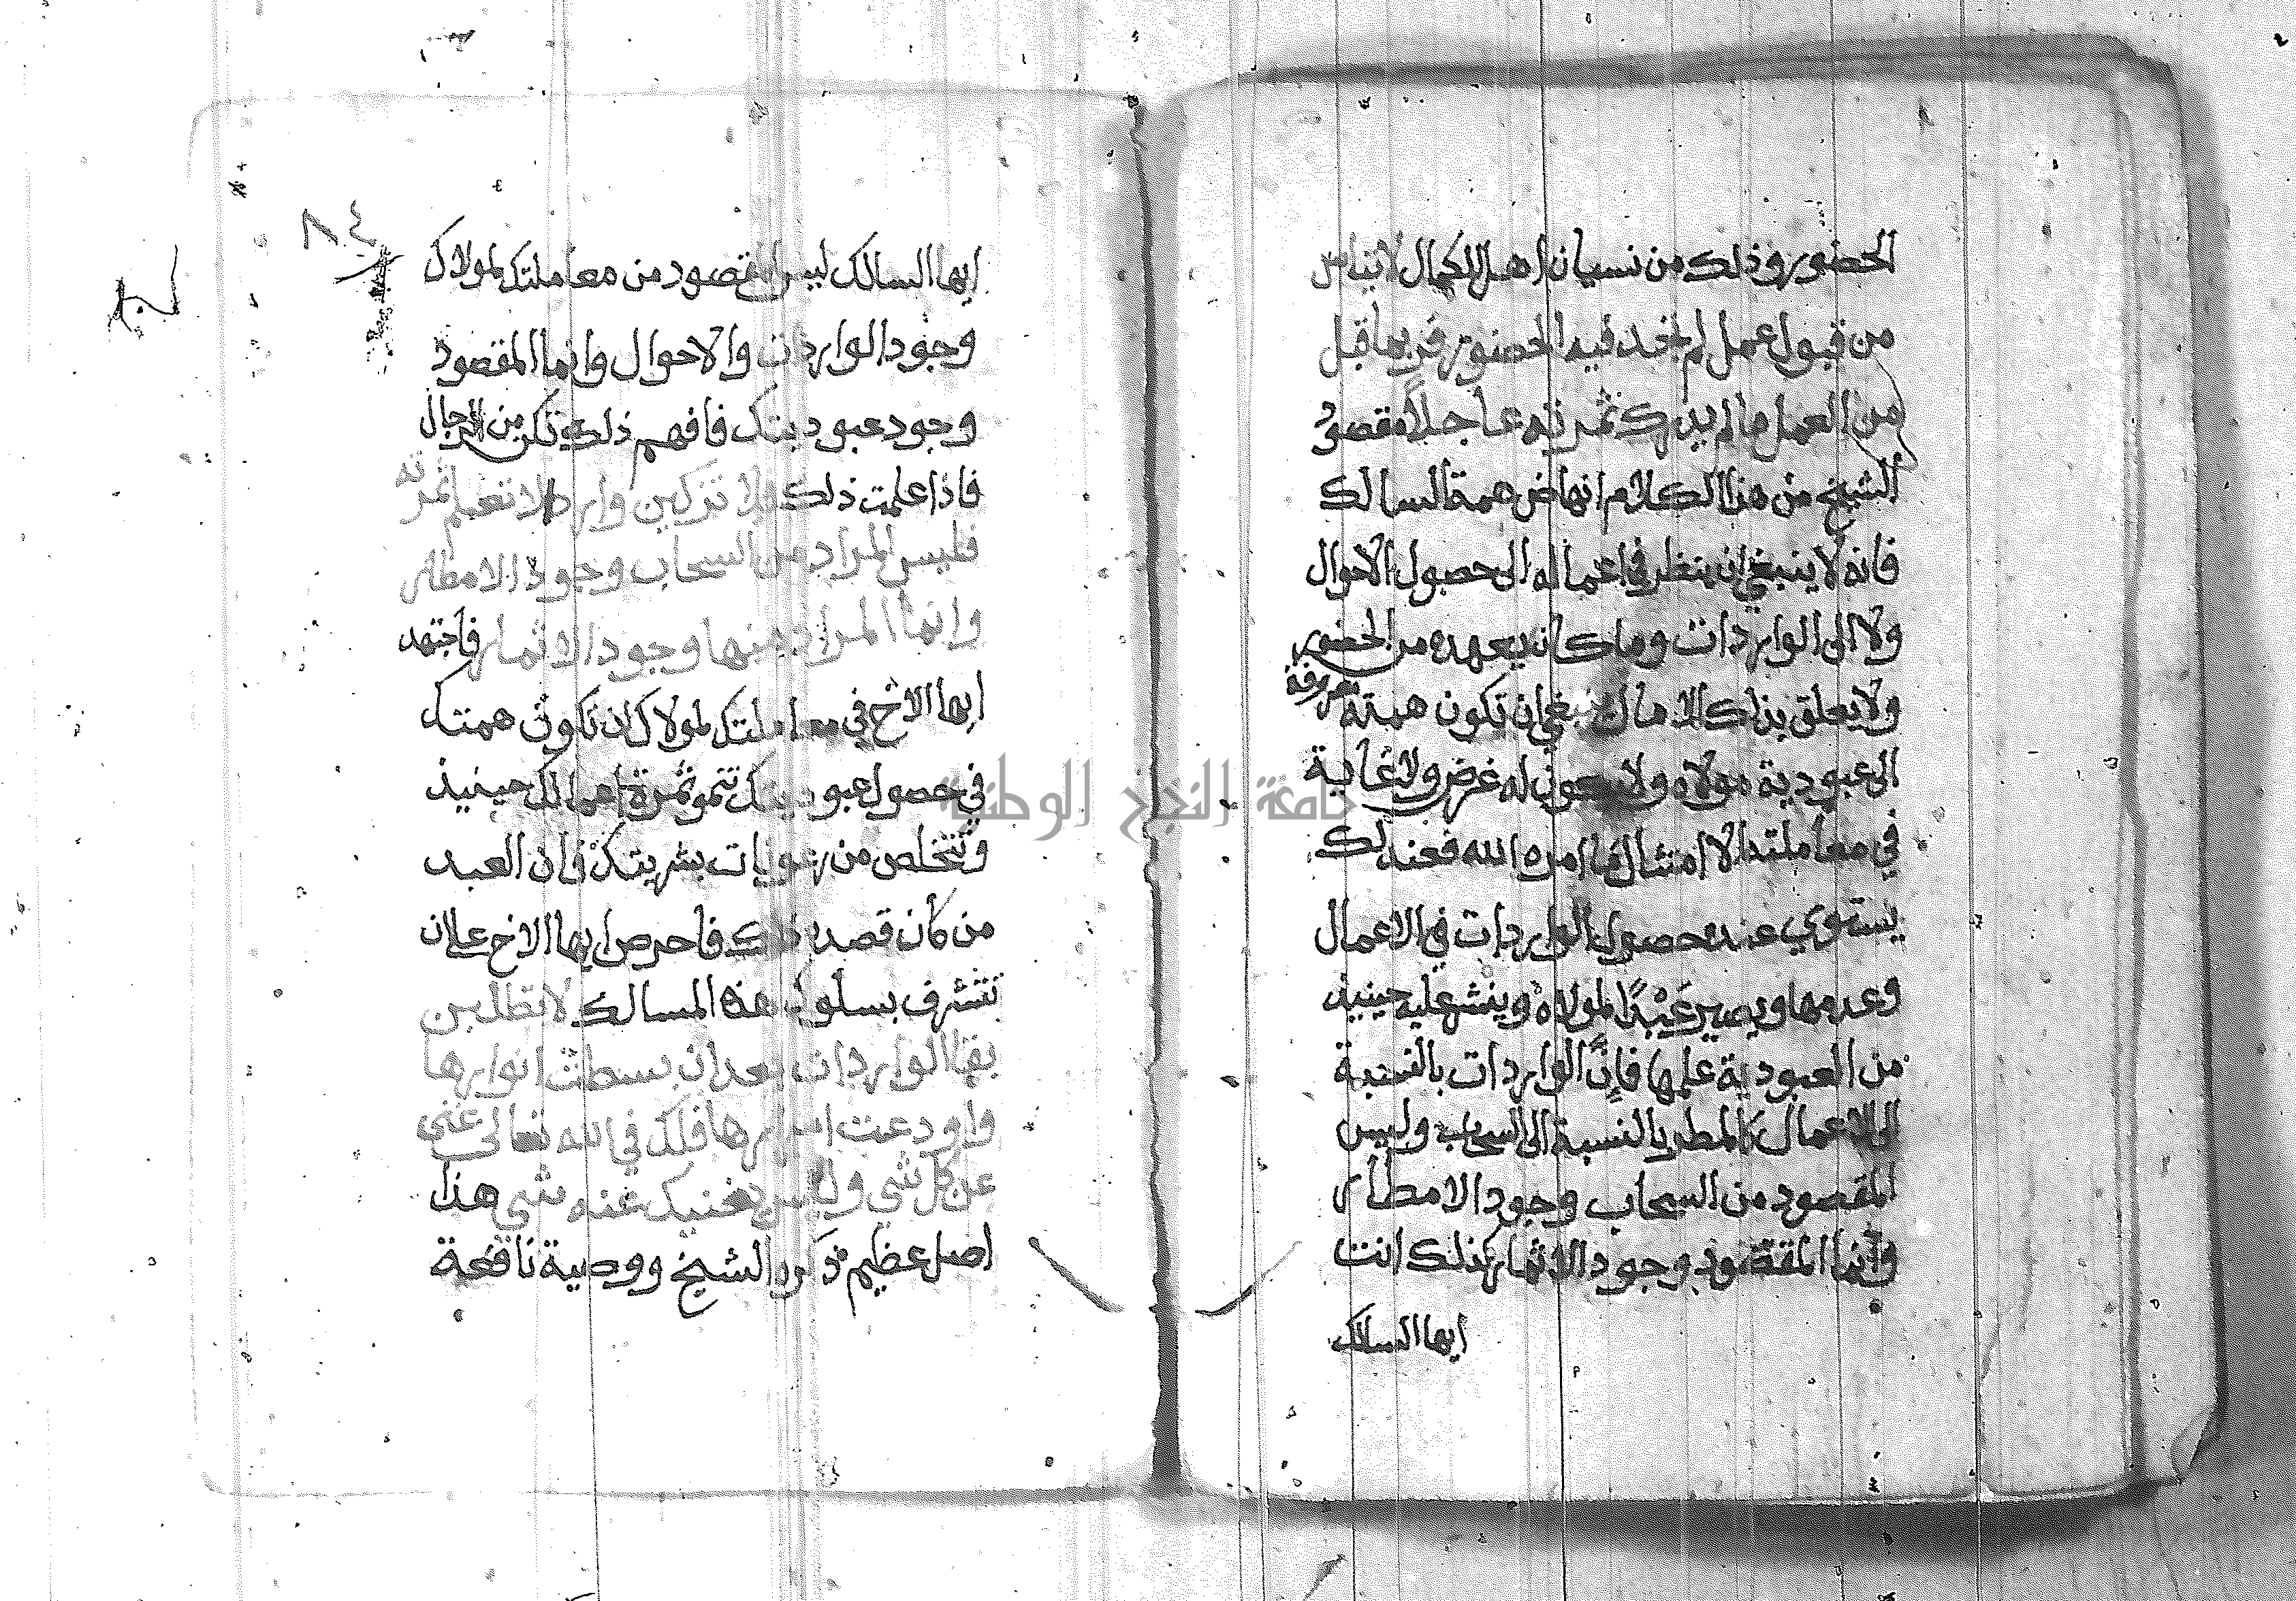 الحضور وذلك من نسيان اهل الكمال لا تياس
من قبول عمل لم تجد فيه الحضور فربما قبل
من العمل ما لم يدرك ثمرته عاجلا مقصود
الشيخ من هذا الكلام انهاض همة السالك
فانه لا ينبغي ان ينظر في اعماله الى حصول الاحوال
ولا الى الواردات وما كان يعهده من الحضور
ولا يعلق بذلك الامال ينبغي ان تكون همته مصروفة
الى عبودية مولاه ولا يكون له غرض ولا غاية
في معاملته الا امتثال ما امره الله فعند ذلك
يستوي عنده حصول الواردات في الاعمال
وعدمها ويصير عَبْدًا لمولاه وينشر عليه حينيذ
من العبودية علمها فإنَّ الواردات بالنسبة
الى الاعمال كالمطر بالنسبة الى السحاب وليس
المقصود من السحاب وجود الامطار
وانما المقصود وجود الاثمار كذلك انت
ايها السالك
٨٤
ايها السالك ليس المقصود من معاملتك لمولاك
وجود الواردات والاحوال وانما المقصود
وجود عبوديتك فافهم ذلك تكن من الرجال
فاذا علمت ذلك فلا تزكين واردا لا تعلم ثمرته
فليس المراد من السحاب وجود الامطار
وانما المراد منها وجود الاثمار فاجتهد
ايها الاخ في معاملتك لمولاك ان تكون همتك
في حصول عبوديتك تنمو ثمرة اعمالك حينيذ
وتتخلص من رعونات بشريتك فان العبد
من كان قصده ذلك فاحرص ايها الاخ على ان
تتشرف بسلوك هذه المسالك لا تطلبن
بقا الواردات بعد ان بسطت انوارها
واودعت اسرارها فلك في الله تعالى غنى
عن كل شي وليس يغنيك عنه شي هذا
اصل عظيم ذكره الشيخ ووصية نافعة
جامعة النجاح الوطنية